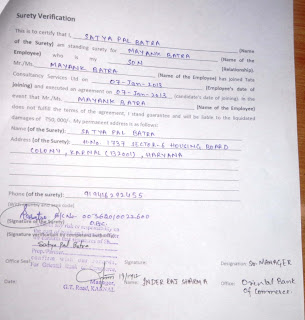 Surety Verification
This is to certify that I, SATYA PAL BATRA (Name
of the Surety) am standing surety for MAYANK BATRA (Name
Employee) who is my SON (Relationship).
Mr./Ms. MAYANK BATRA (Name of the Employee) has joined Tata
Consultancy Services Ltd on 07-Jan-2013 (Employee's date of
joining) and executed an agreement on 07-Jan-2013 (candidate's date of joining). In the
event that Mr./Ms. MAYANK BATRA (Name of Employee)
does not fulfill the terms of the agreement, I stand guarantee and will be liable to the liquidated
damages of `50,000/-. My permanent address is as follows:
Name (of the Surety): SATYA PAL BATRA
Address (of the Surety): H.No. 1737 SECTOR-6 HOUSING BOARD
COLONY, KARNAL (132001), HARYANA
Phone (of the surety): 919416292455
A/c No. 00362010022600
(Signature of the Surety) OBC.
Satya Pal Batra
Office Seal: Signature: Designation: Sr. MANAGER
Date: Manager Name: INDER RAJ SHARMA Office: Oriental Bank
G.T. Road, KARNAL of Commerce.